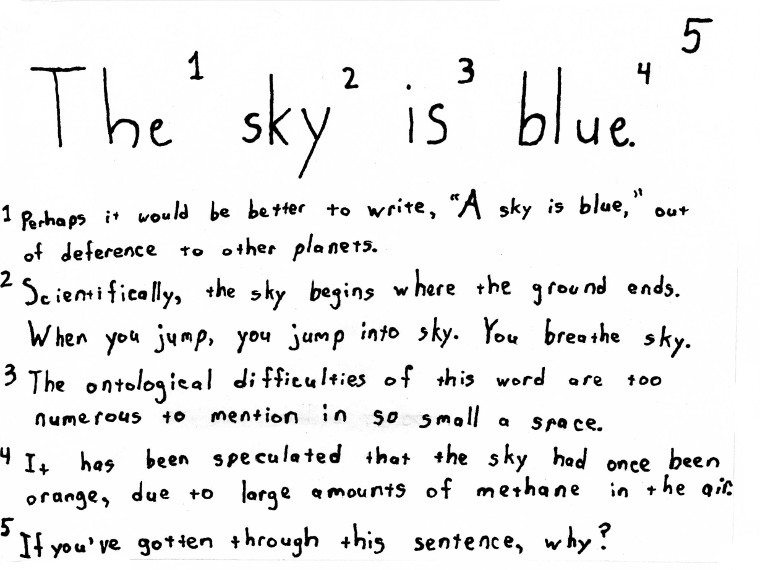 The¹ sky² is³ blue.⁴ ⁵
1 Perhaps it would be better to write, "A sky is blue," out
of deference to other planets.
2 Scientifically, the sky begins where the ground ends.
When you jump, you jump into sky. You breathe sky.
3 The ontological difficulties of this word are too
numerous to mention in so small a space.
4 It has been speculated that the sky had once been
orange, due to large amounts of methane in the air.
5 If you've gotten through this sentence, why?